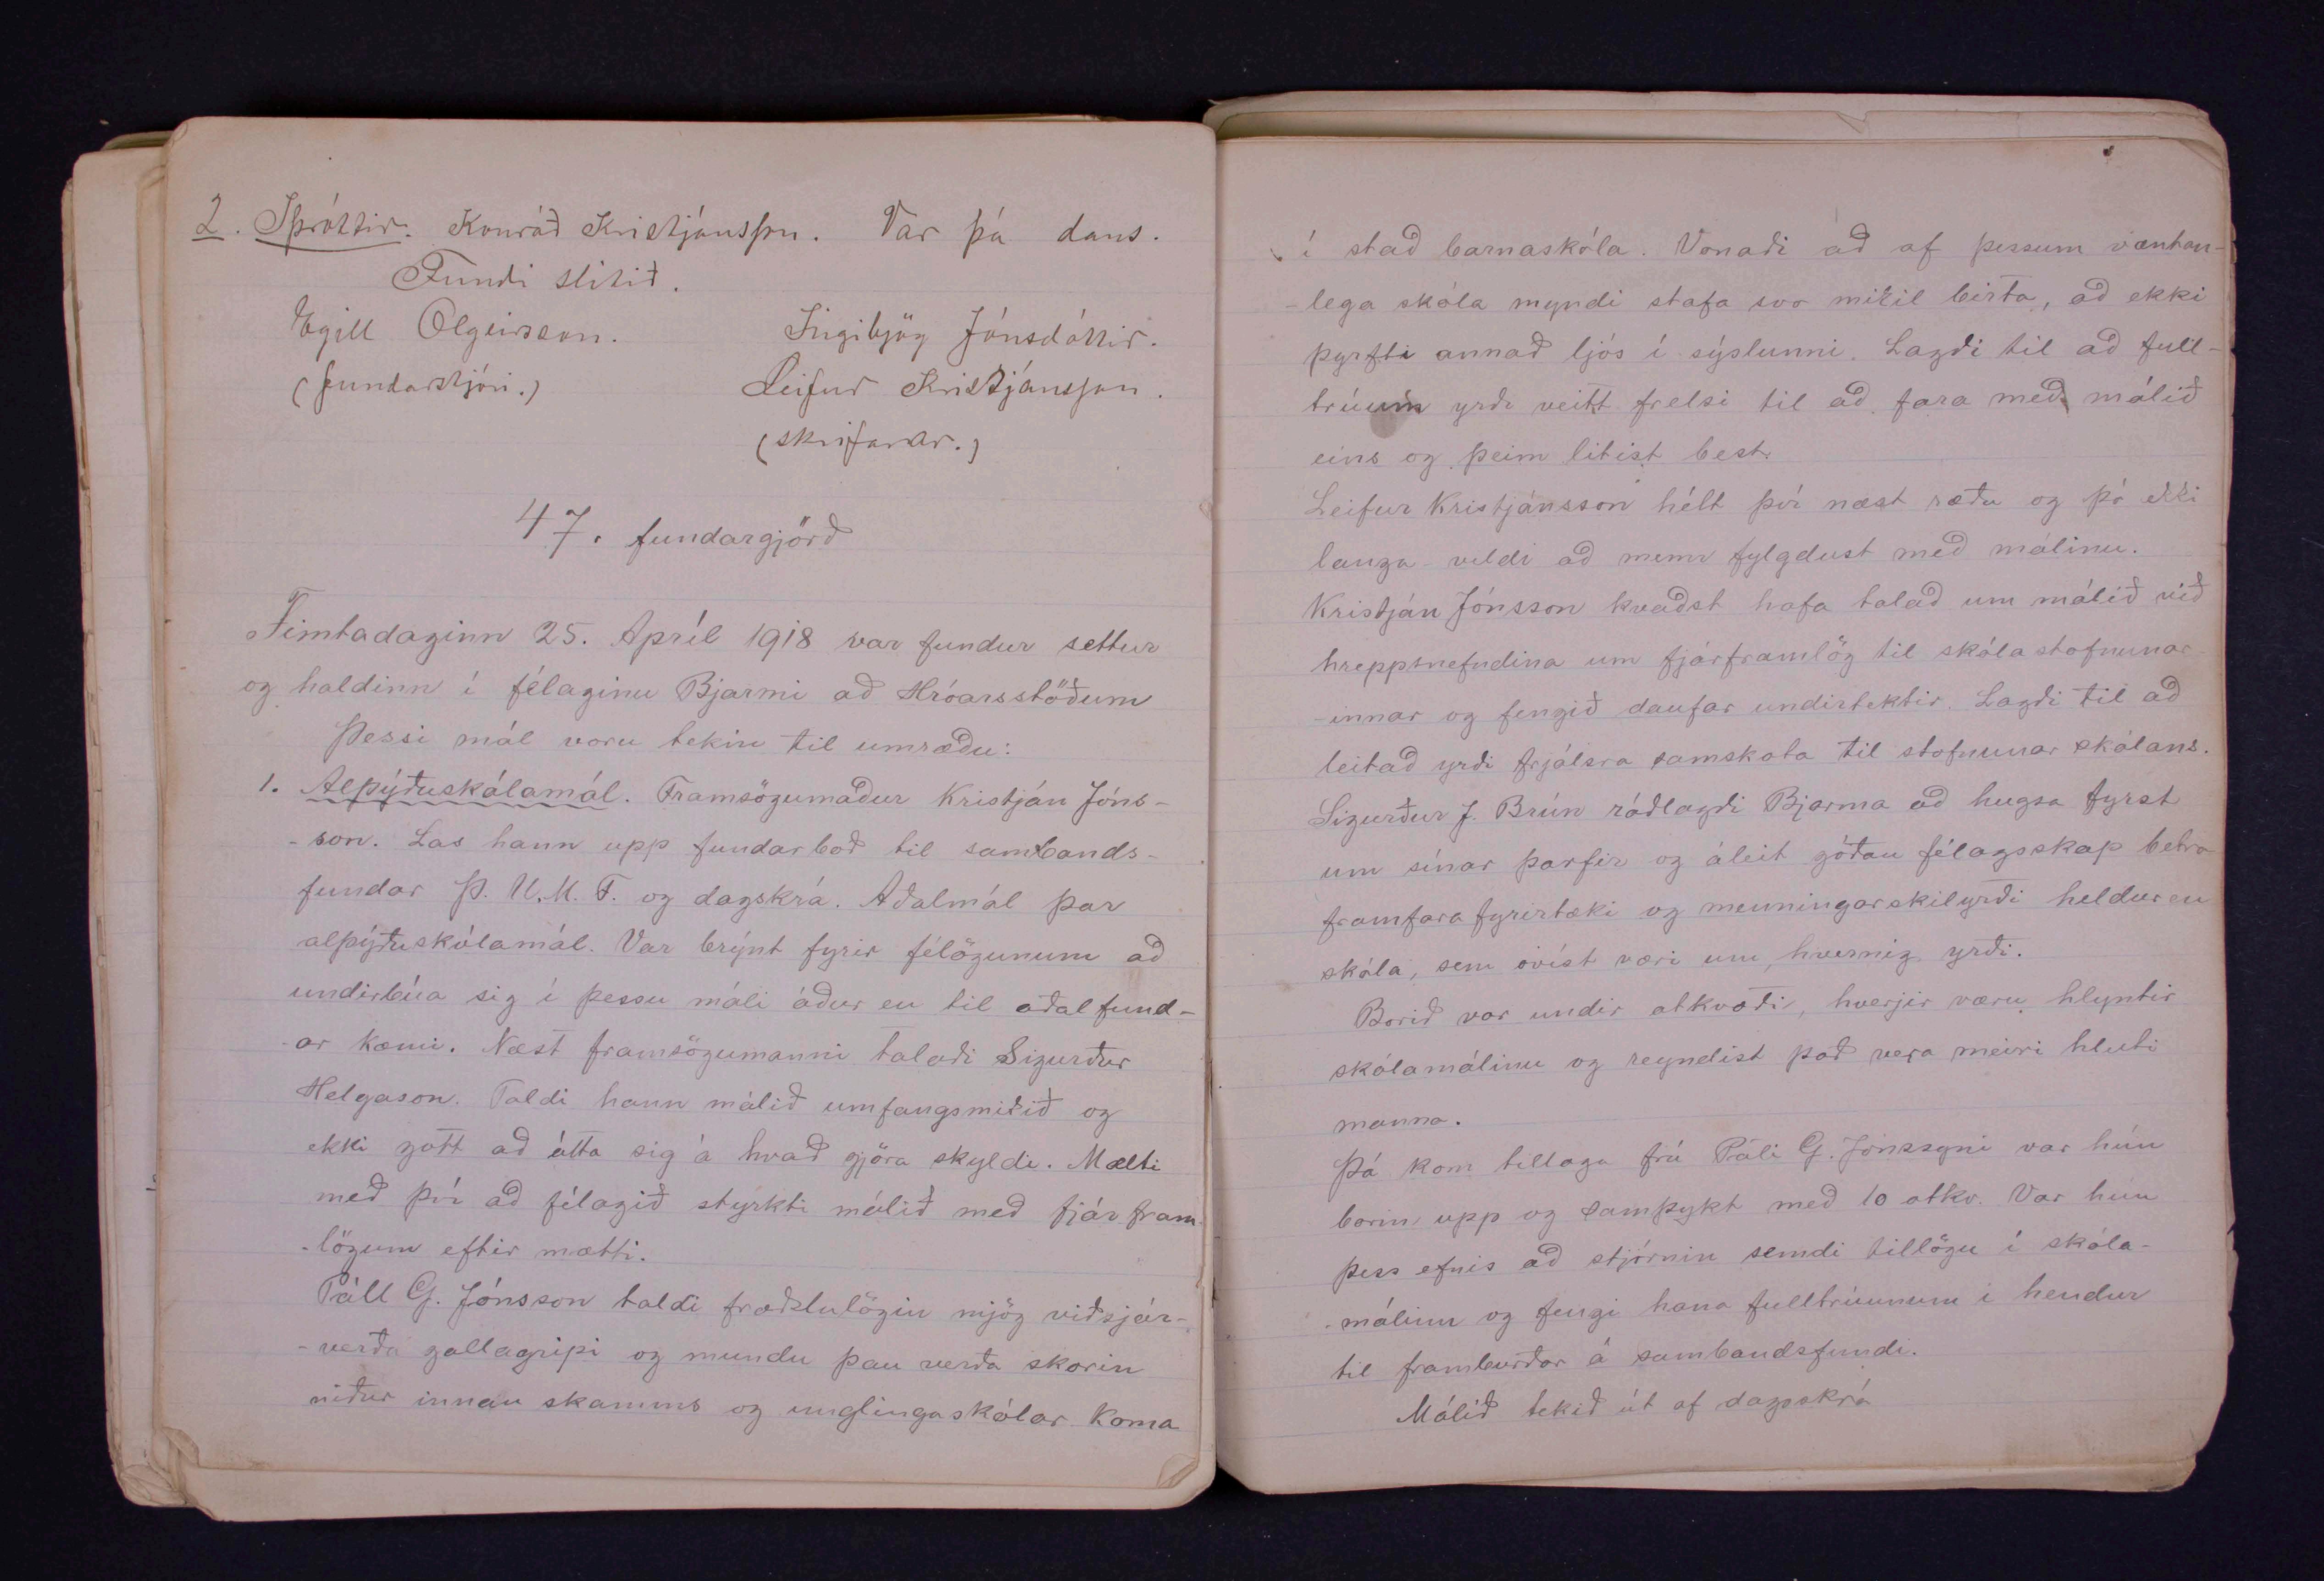 2. Íþróttir. Konráð Kristjánsson. Var þá dans.
Fundi slitið.
Egill Olgeirsson. Ingibjög Jónsdóttir.
(fundarstjóri.) Leifur Kristjánsson.
(skrifarar.)
47. fundargjörð
Fimtadaginn 25. Apríl 1918 var fundur settur
og haldinn í félaginu Bjarmi að Hróarsstöðum
Þessi mál voru tekin til umræðu:
1. Alþýðuskólamál. Framsögumaður Kristján Jóns-
-son. Las hann upp fundarboð til sambands-
fundar Þ. U. M. F. og dagskrá. Aðalmál þar
alþýðuskólamál. Var brýnt fyrir félögunum að
undirbúa sig í þessu máli áður en til aðalfund-
-ar kæmi. Næst framsögumanni talaði Sigurður
Helgason. Taldi hann málið umfangsmikið og
ekki gott að átta sig á hvað gjöra skyldi. Mælti
með því að félagið styrkti málið með fjárfram-
-lögum eftir mætti.
Páll G. Jónsson taldi fræðslulögin mjög viðsjár-
-verða gallagripi og mundu þau verða skorin
niður innan skamms og unglingaskólar koma
í stað barnaskóla. Vonaði að af þessum væntan-
-lega skóla myndi stafa svo mikil birta, að ekki
þyrfti annað ljós í sýslunni. Lagði til að full-
trúum yrði veitt frelsi til að fara með málið
eins og þeim litist best.
Leifur Kristjánsson hélt því næst ræðu og þó ekki
langa - vildi að menn fylgdust með málinu.
Kristján Jónsson kvaðst hafa talað um málið við
hreppsnefndina um fjárframlög til skólastofnunar-
-innar og fengið daufar undirtektir. Lagði til að
leitað yrði frjálsra samskota til stofnunar skólans.
Sigurður J. Brún ráðlagði Bjarma að hugsa fyrst
um sínar þarfir og áleit góðan félagsskap betra
framfara fyrirtæki og menningarskilyrði heldur en
skóla, sem óvíst væri um, hvernig yrði.
Borið var undir atkvæði, hverjir væru hlyntir
skólamálinu og reyndist það vera meiri hluti
manna.
Þá kom tillaga frá Páli G. Jónssyni var hún
borin upp og samþykt með 10 atkv. Var hún
þess efnis að stjórnin semdi tillögu í skóla-
-málinu og fengi hana fulltrúunum í hendur
til framburðar á sambandsfundi.
Málið tekið út af dagsskrá